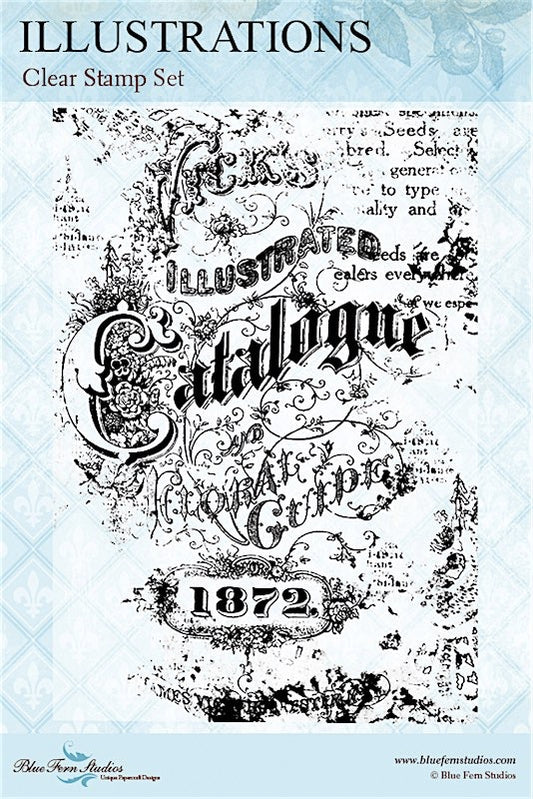 ILLUSTRATIONS
Clear Stamp Set
Seeds are
bred. Select
general
to type
ality and
VICK'S
ILLUSTRATED
eeds are
ealers everywhere.
we espe
Catalogue
AND
FLORAL
GUIDE
FOR
1872.
JAMES VICK
Blue Fern Studios
Unique Papercraft Designs
www.bluefernstudios.com
© Blue Fern Studios